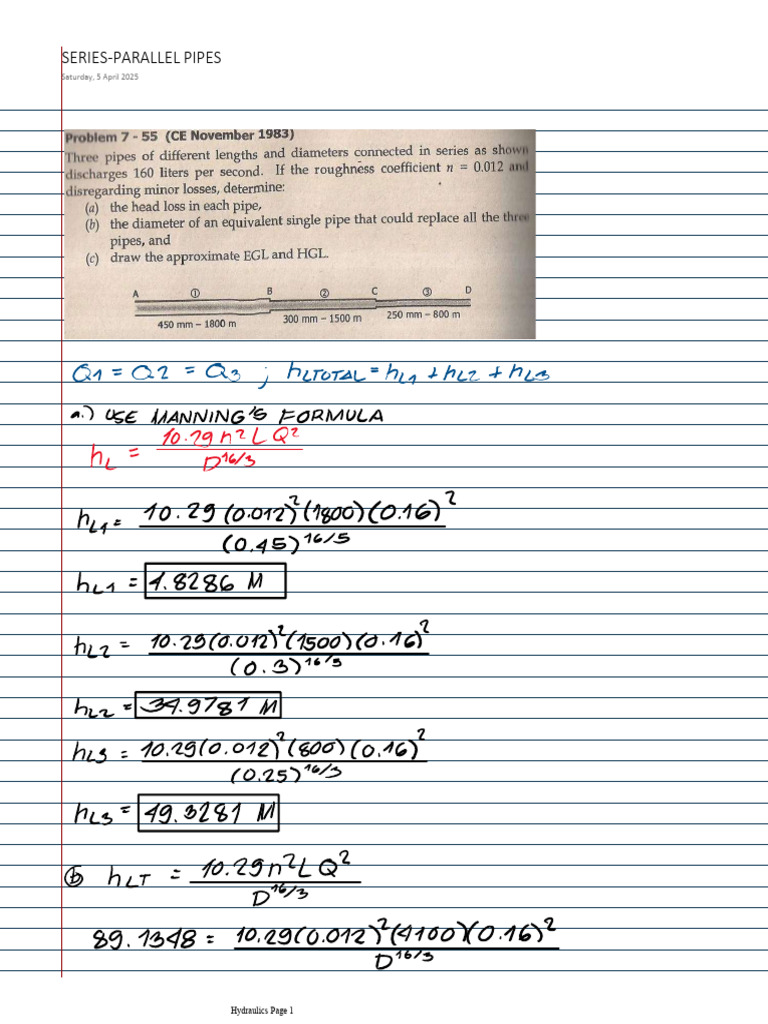 SERIES-PARALLEL PIPES
Saturday, 5 April 2025
Problem 7 - 55 (CE November 1983)
Three pipes of different lengths and diameters connected in series as shown
discharges 160 liters per second. If the roughness coefficient n = 0.012 and
disregarding minor losses, determine:
(a) the head loss in each pipe,
(b) the diameter of an equivalent single pipe that could replace all the three
pipes, and
(c) draw the approximate EGL and HGL.
A ① B ② C ③ D
450 mm – 1800 m 300 mm – 1500 m 250 mm – 800 m
Q1 = Q2 = Q3 ; hLTOTAL = hL1 + hL2 + hL3
a.) USE MANNING'S FORMULA
hL = 10.29 n² L Q² / D^16/3
hL1 = 10.29 (0.012)² (1800) (0.16)² / (0.45)^16/5
hL1 = 4.8286 M
hL2 = 10.29 (0.012)² (1500) (0.16)² / (0.3)^16/3
hL2 = 34.9781 M
hL3 = 10.29 (0.012)² (800) (0.16)² / (0.25)^16/3
hL3 = 49.3281 M
ⓑ hLT = 10.29 n² L Q² / D^16/3
89.1348 = 10.29 (0.012)² (4100) (0.16)² / D^16/3
Hydraulics Page 1